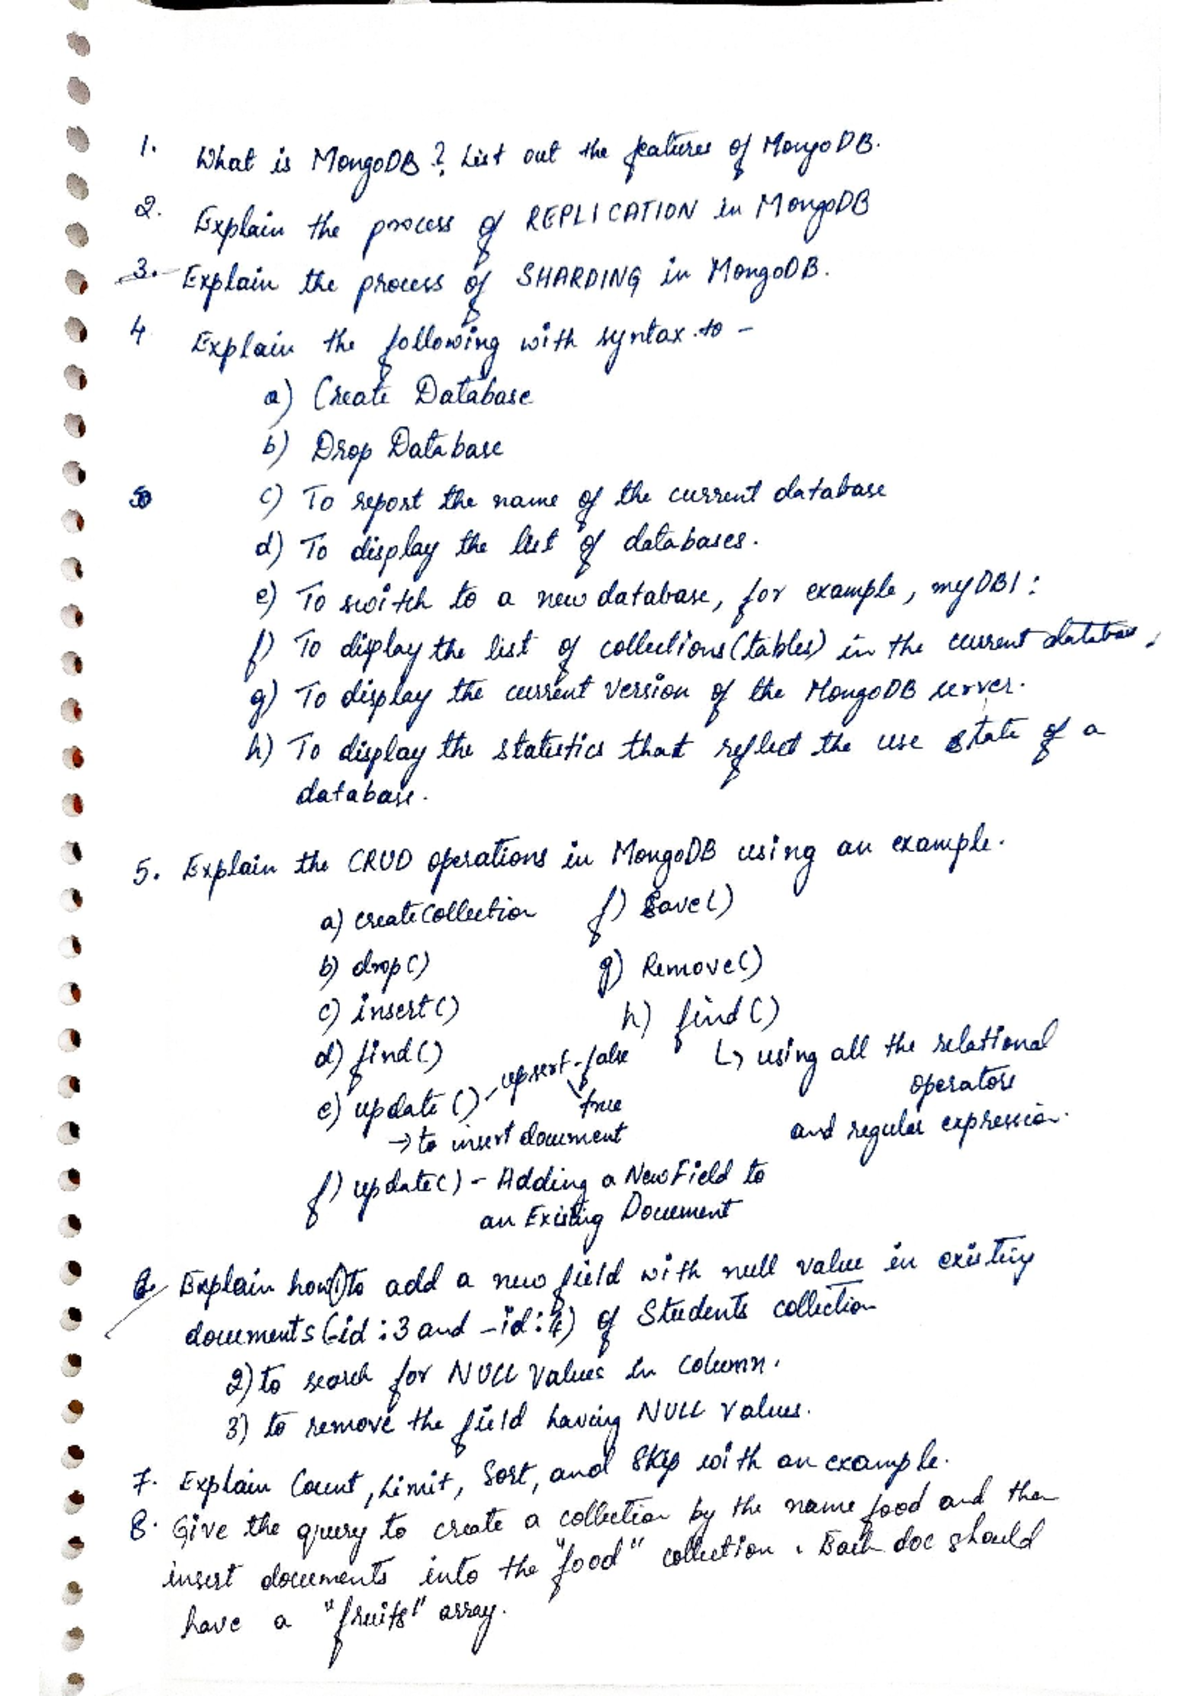 1. What is MongoDB? List out the features of MongoDB.
2. Explain the process of REPLICATION in MongoDB
3. Explain the process of SHARDING in MongoDB.
4 Explain the following with syntax to -
a) Create Database
b) Drop Database
c) To report the name of the current database
d) To display the list of databases.
e) To switch to a new database, for example, myDB1:
f) To display the list of collections (tables) in the current database.
g) To display the current version of the MongoDB server.
h) To display the statistics that reflect the use state of a
database.
5. Explain the CRUD operations in MongoDB using an example.
a) createCollection
b) drop()
c) insert()
d) find()
e) update() - upsert - false
true
→ to insert document
f) update() - Adding a New Field to
an Existing Document
f) Save()
g) Remove()
h) find()
↳ using all the relational
operators
and regular expression.
6. Explain how 1) to add a new field with null value in existing
documents (_id:3 and _id:4) of Students collection
2) to search for NULL values in column.
3) to remove the field having NULL values.
7. Explain Count, Limit, Sort, and Skip with an example.
8. Give the query to create a collection by the name food and then
insert documents into the "food" collection. Each doc should
have a "fruits" array.